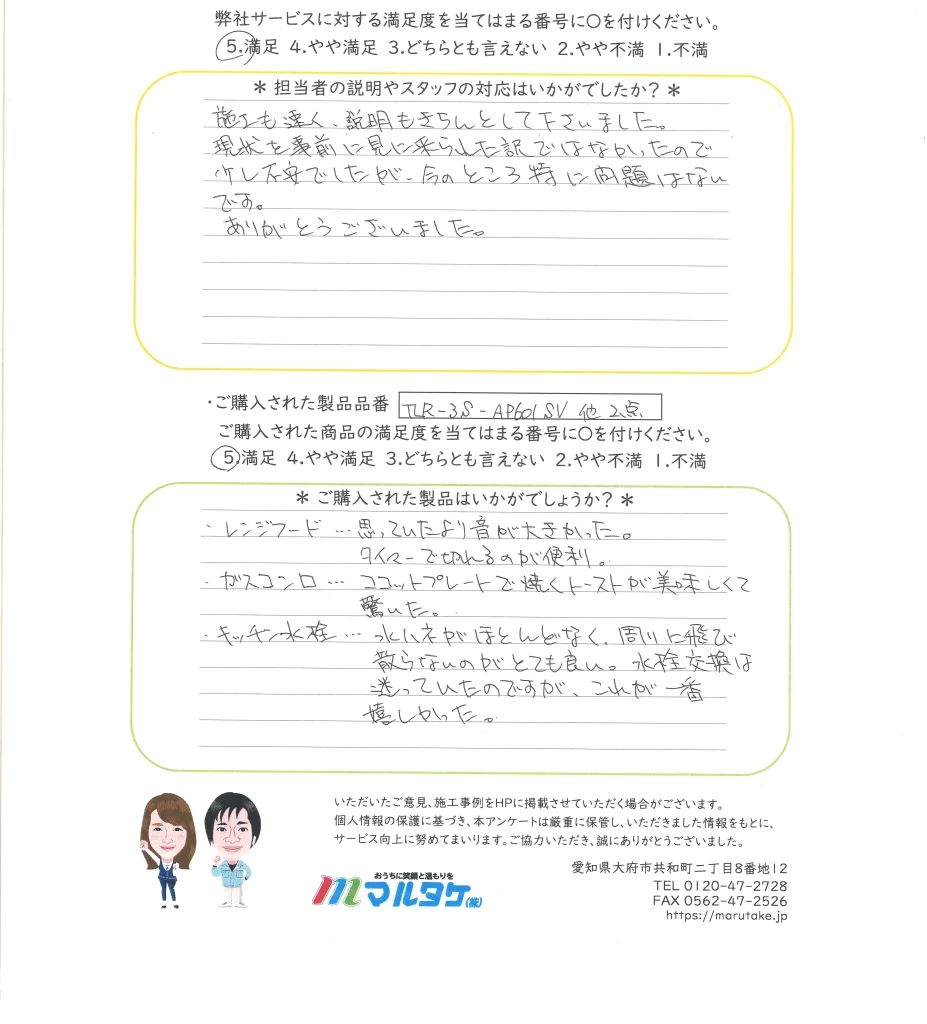 弊社サービスに対する満足度を当てはまる番号に〇を付けください。
5.満足 4.やや満足 3.どちらとも言えない 2.やや不満 1.不満
＊ 担当者の説明やスタッフの対応はいかがでしたか？ ＊
施工も速く、説明もきちんとして下さいました。
現状を事前に見に来られた訳ではなかったので
少し不安でしたが、今のところ特に問題はない
です。
ありがとうございました。
・ご購入された製品品番 TLR-3S-AP601SV 他 2点
ご購入された商品の満足度を当てはまる番号に〇を付けください。
5.満足 4.やや満足 3.どちらとも言えない 2.やや不満 1.不満
＊ ご購入された製品はいかがでしょうか？ ＊
・レンジフード … 思っていたより音が大きかった。
タイマーで切れるのが便利。
・ガスコンロ … ココットプレートで焼くトーストが美味しくて
驚いた。
・キッチン水栓 … 水ハネがほとんどなく、周りに飛び
散らないのがとても良い。水栓交換は
迷っていたのですが、これが一番
嬉しかった。
いただいたご意見、施工事例をHPに掲載させていただく場合がございます。
個人情報の保護に基づき、本アンケートは厳重に保管し、いただきました情報をもとに、
サービス向上に努めてまいります。ご協力いただき、誠にありがとうございました。
愛知県大府市共和町二丁目8番地12
おうちに笑顔と温もりを
マルタケ(株)
TEL 0120-47-2728
FAX 0562-47-2526
https://marutake.jp